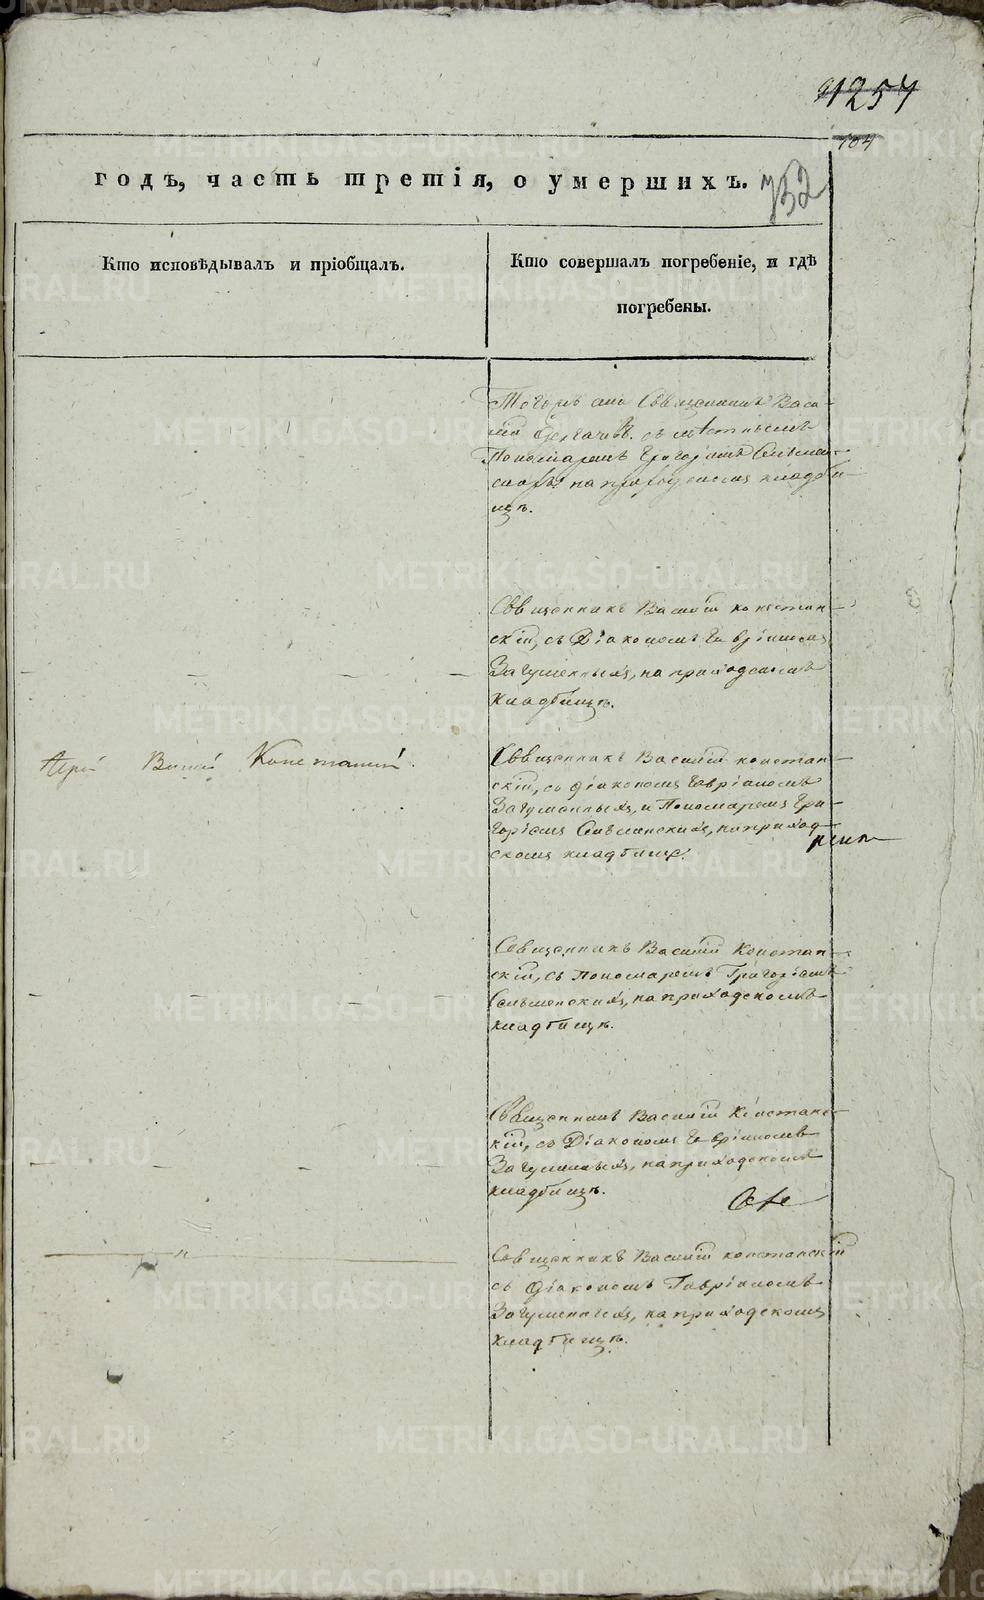 1257
104
годъ, часть третія, о умершихъ.
732
Кто исповѣдывалъ и пріобщалъ.
Кто совершалъ погребеніе, и гдѣ
погребены.
Священникъ Васи-
лій съ мѣстнымъ
Пономаремъ Григоріемъ
на приходскомъ кладби-
щѣ.
Священникъ Василій Констан-
скій, съ Діакономъ Гавріиломъ
Загуменныхъ, на приходскомъ
кладбищѣ.
Іерей Василій Констанскій.
Священникъ Василій Констан-
скій, съ діакономъ Гавріиломъ
Загуменныхъ, и Пономаремъ Гри-
горіемъ на приход-
скомъ кладбищѣ.
Священникъ Василій Констан-
скій, съ Пономаремъ Григоріемъ
на приходскомъ
кладбищѣ.
Священникъ Василій Констан-
скій, съ Діакономъ Гавріиломъ
Загуменныхъ, на приходскомъ
кладбищѣ.
Священникъ Василій Констанскій
съ діакономъ Гавріиломъ
Загуменныхъ, на приходскомъ
кладбищѣ.
METRIKI.GASO-URAL.RU